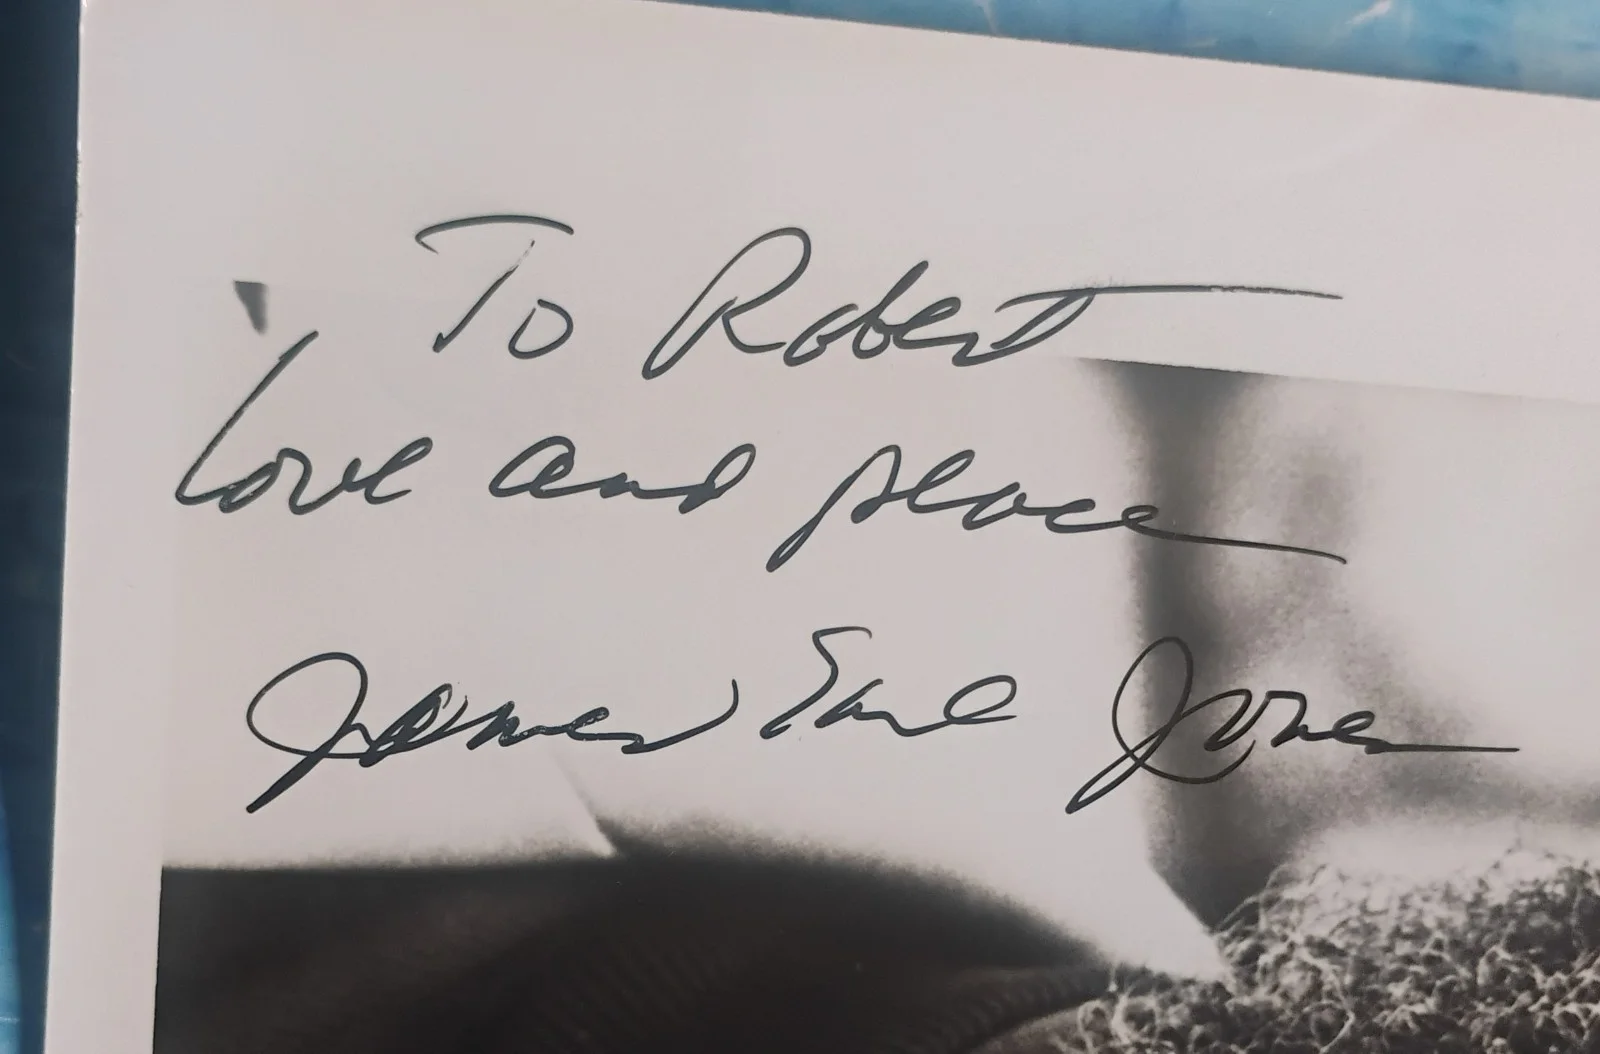 To Robert
Love and peace
James Earl Jones